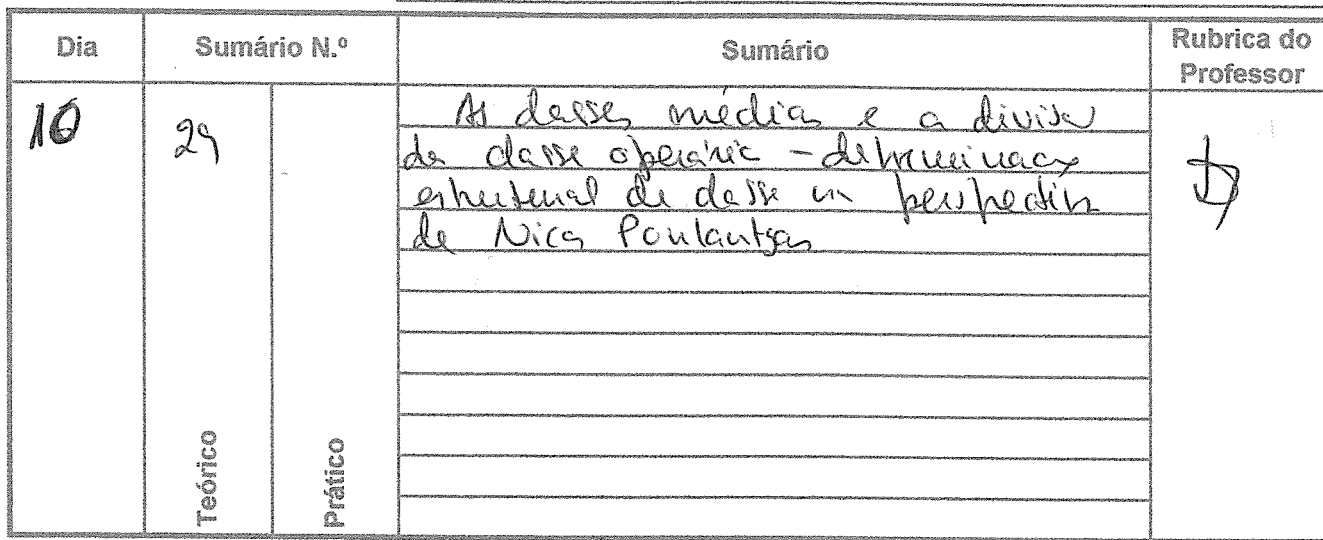 Dia
Sumário N.º
Sumário
Rubrica do
Professor
10
29
As classes médias e a divisão
da classe operária - determinação
estrutural de classe na perspectiva
de Nicos Poulantzas
Teórico
Prático